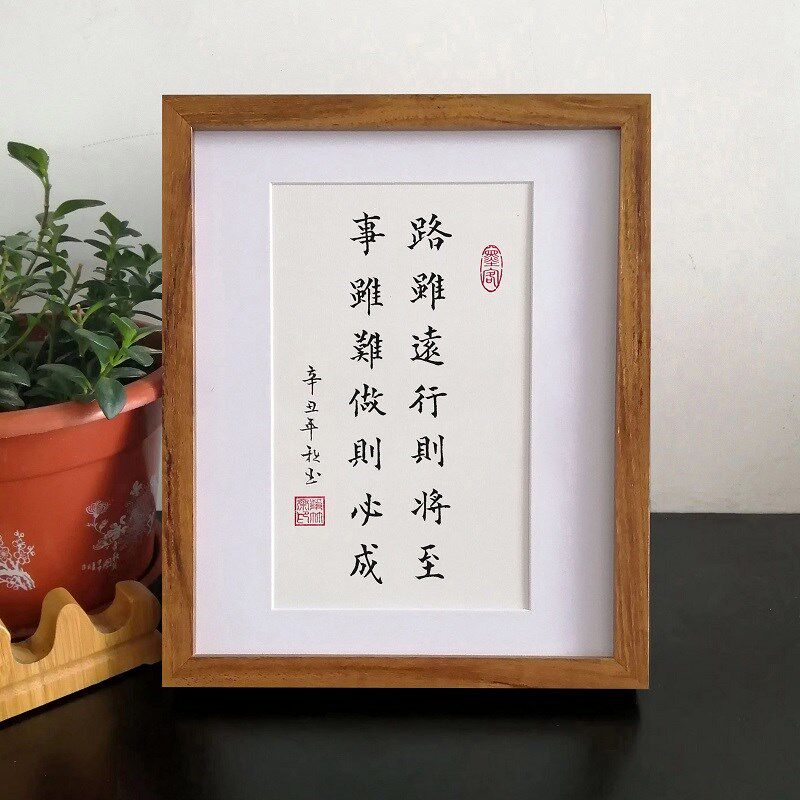 墨客
路雖遠行則将至
事雖難做則必成
辛丑年秋書